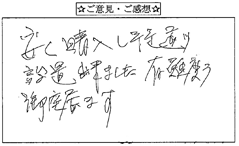 ☆ご意見・ご感想☆
安く購入し予定通り
設置出来ました 有難う
御座居ます